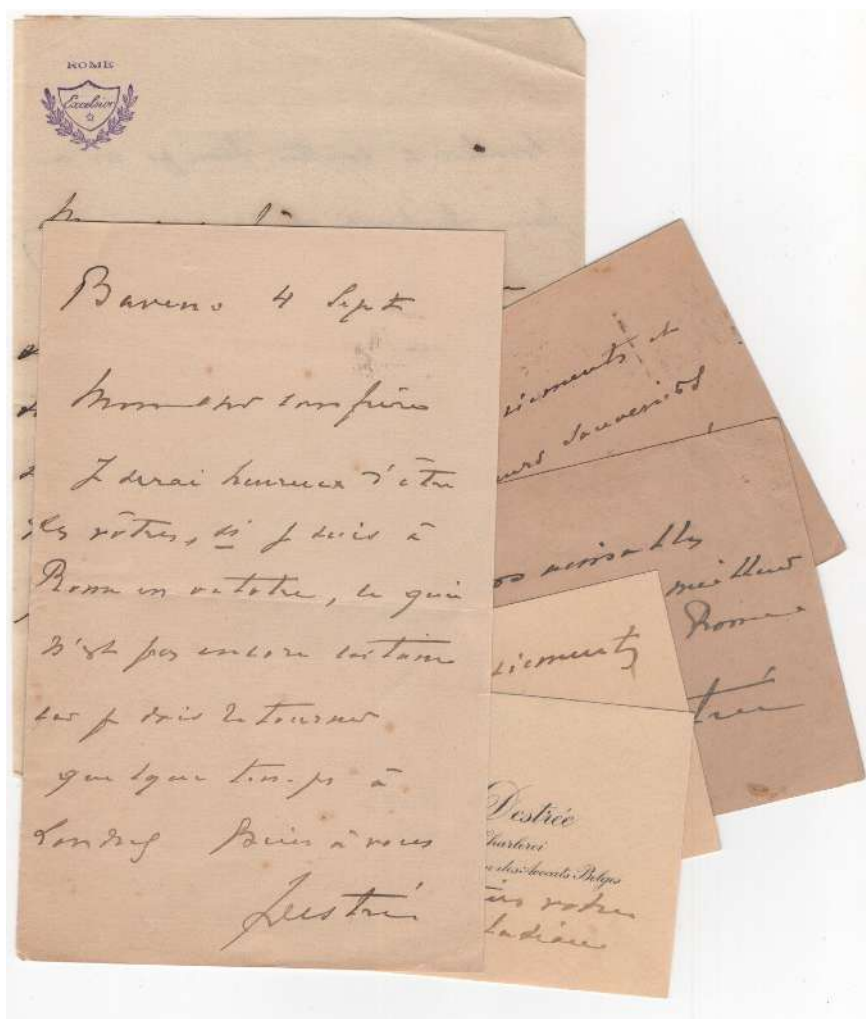 ROME
Excelsior
Baveno 4 Sept
Mon cher confrère
Je serai heureux d'être
des vôtres, si je suis à
Rome en octobre, ce qui
n'est pas encore certain
car je dois retourner
quelque temps à
Londres Bien à vous
Destrée
ciements et
eurs souvenirs
os aimables
meilleur
Rome
trée
ciements
Destrée
Charleroi
des Avocats Belges
très votre